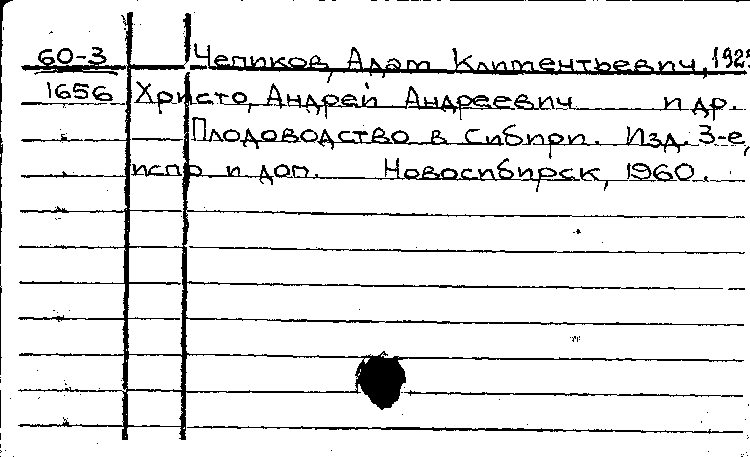 60-3 Чепиков, Адам Климентьевич, 192
1656 Христо, Андрей Андреевич и др.
Плодоводство в Сибири. Изд. 3-е,
испр и доп. Новосибирск, 1960.